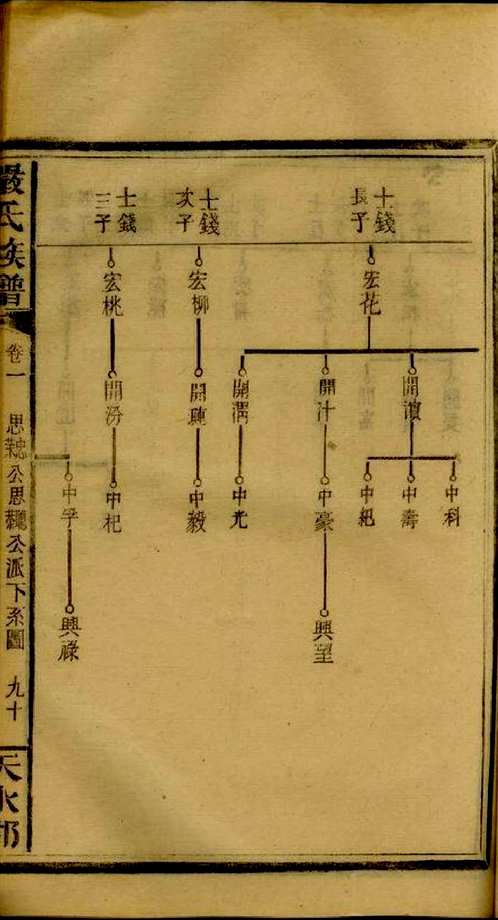 士錢
長子
宏花
開濵
中科
中壽
中紀
開汁
中豪
興望
開潤
中尤
士錢
次子
宏柳
開漣
中毅
士錢
三子
宏桃
開汾
中杞
中孚
興祿
嚴氏族譜
卷一
思忠公思聰公派下系圖
九十
天水郡